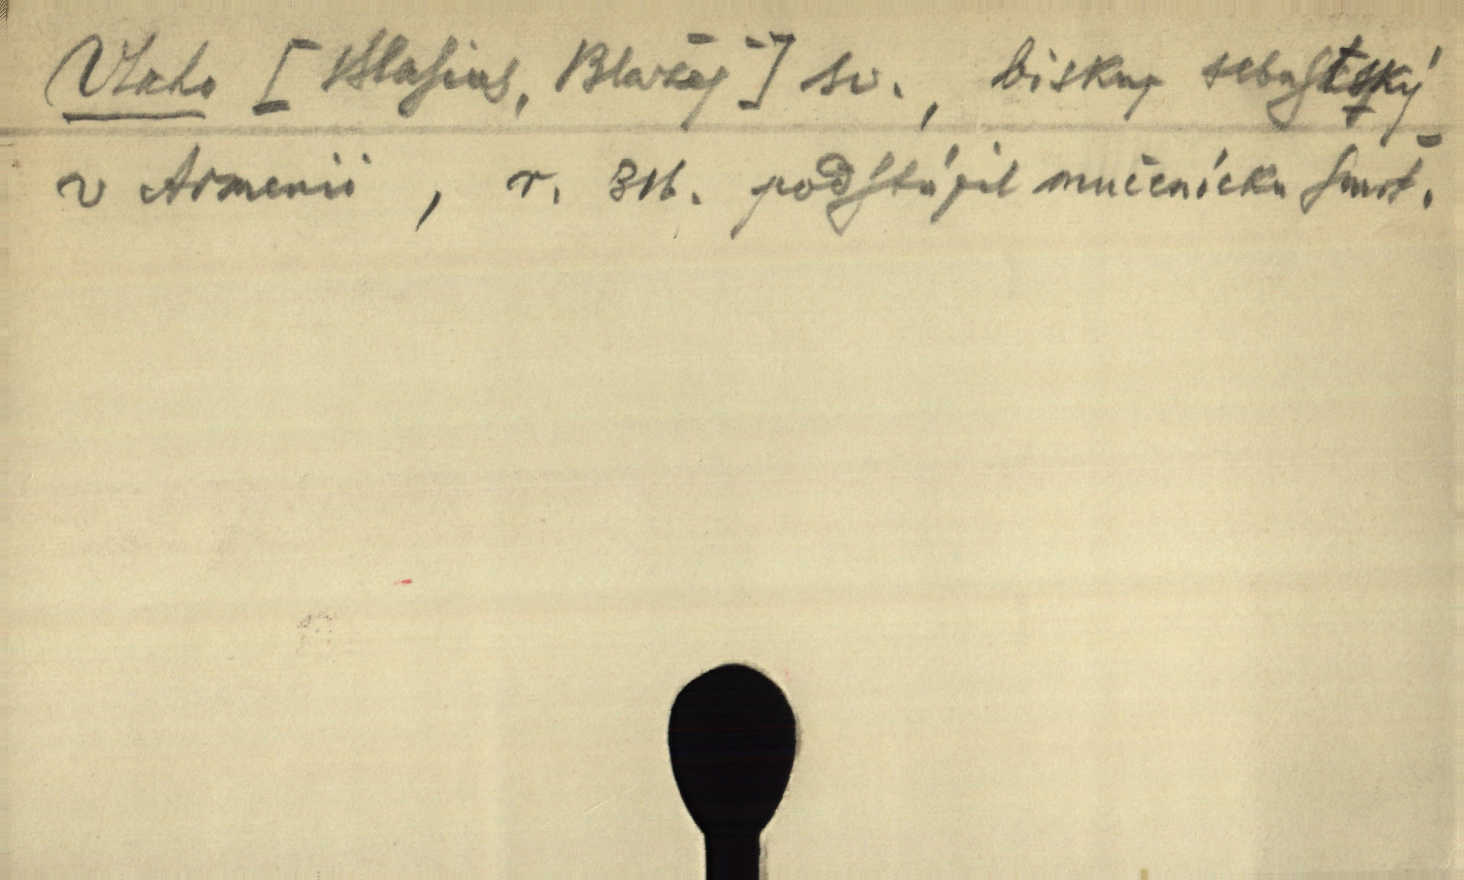 Vlaho [Blasius, Blažēj] sv., biskup sebastský
v Armenii, r. 316. podstúpil mučenícku smrť.